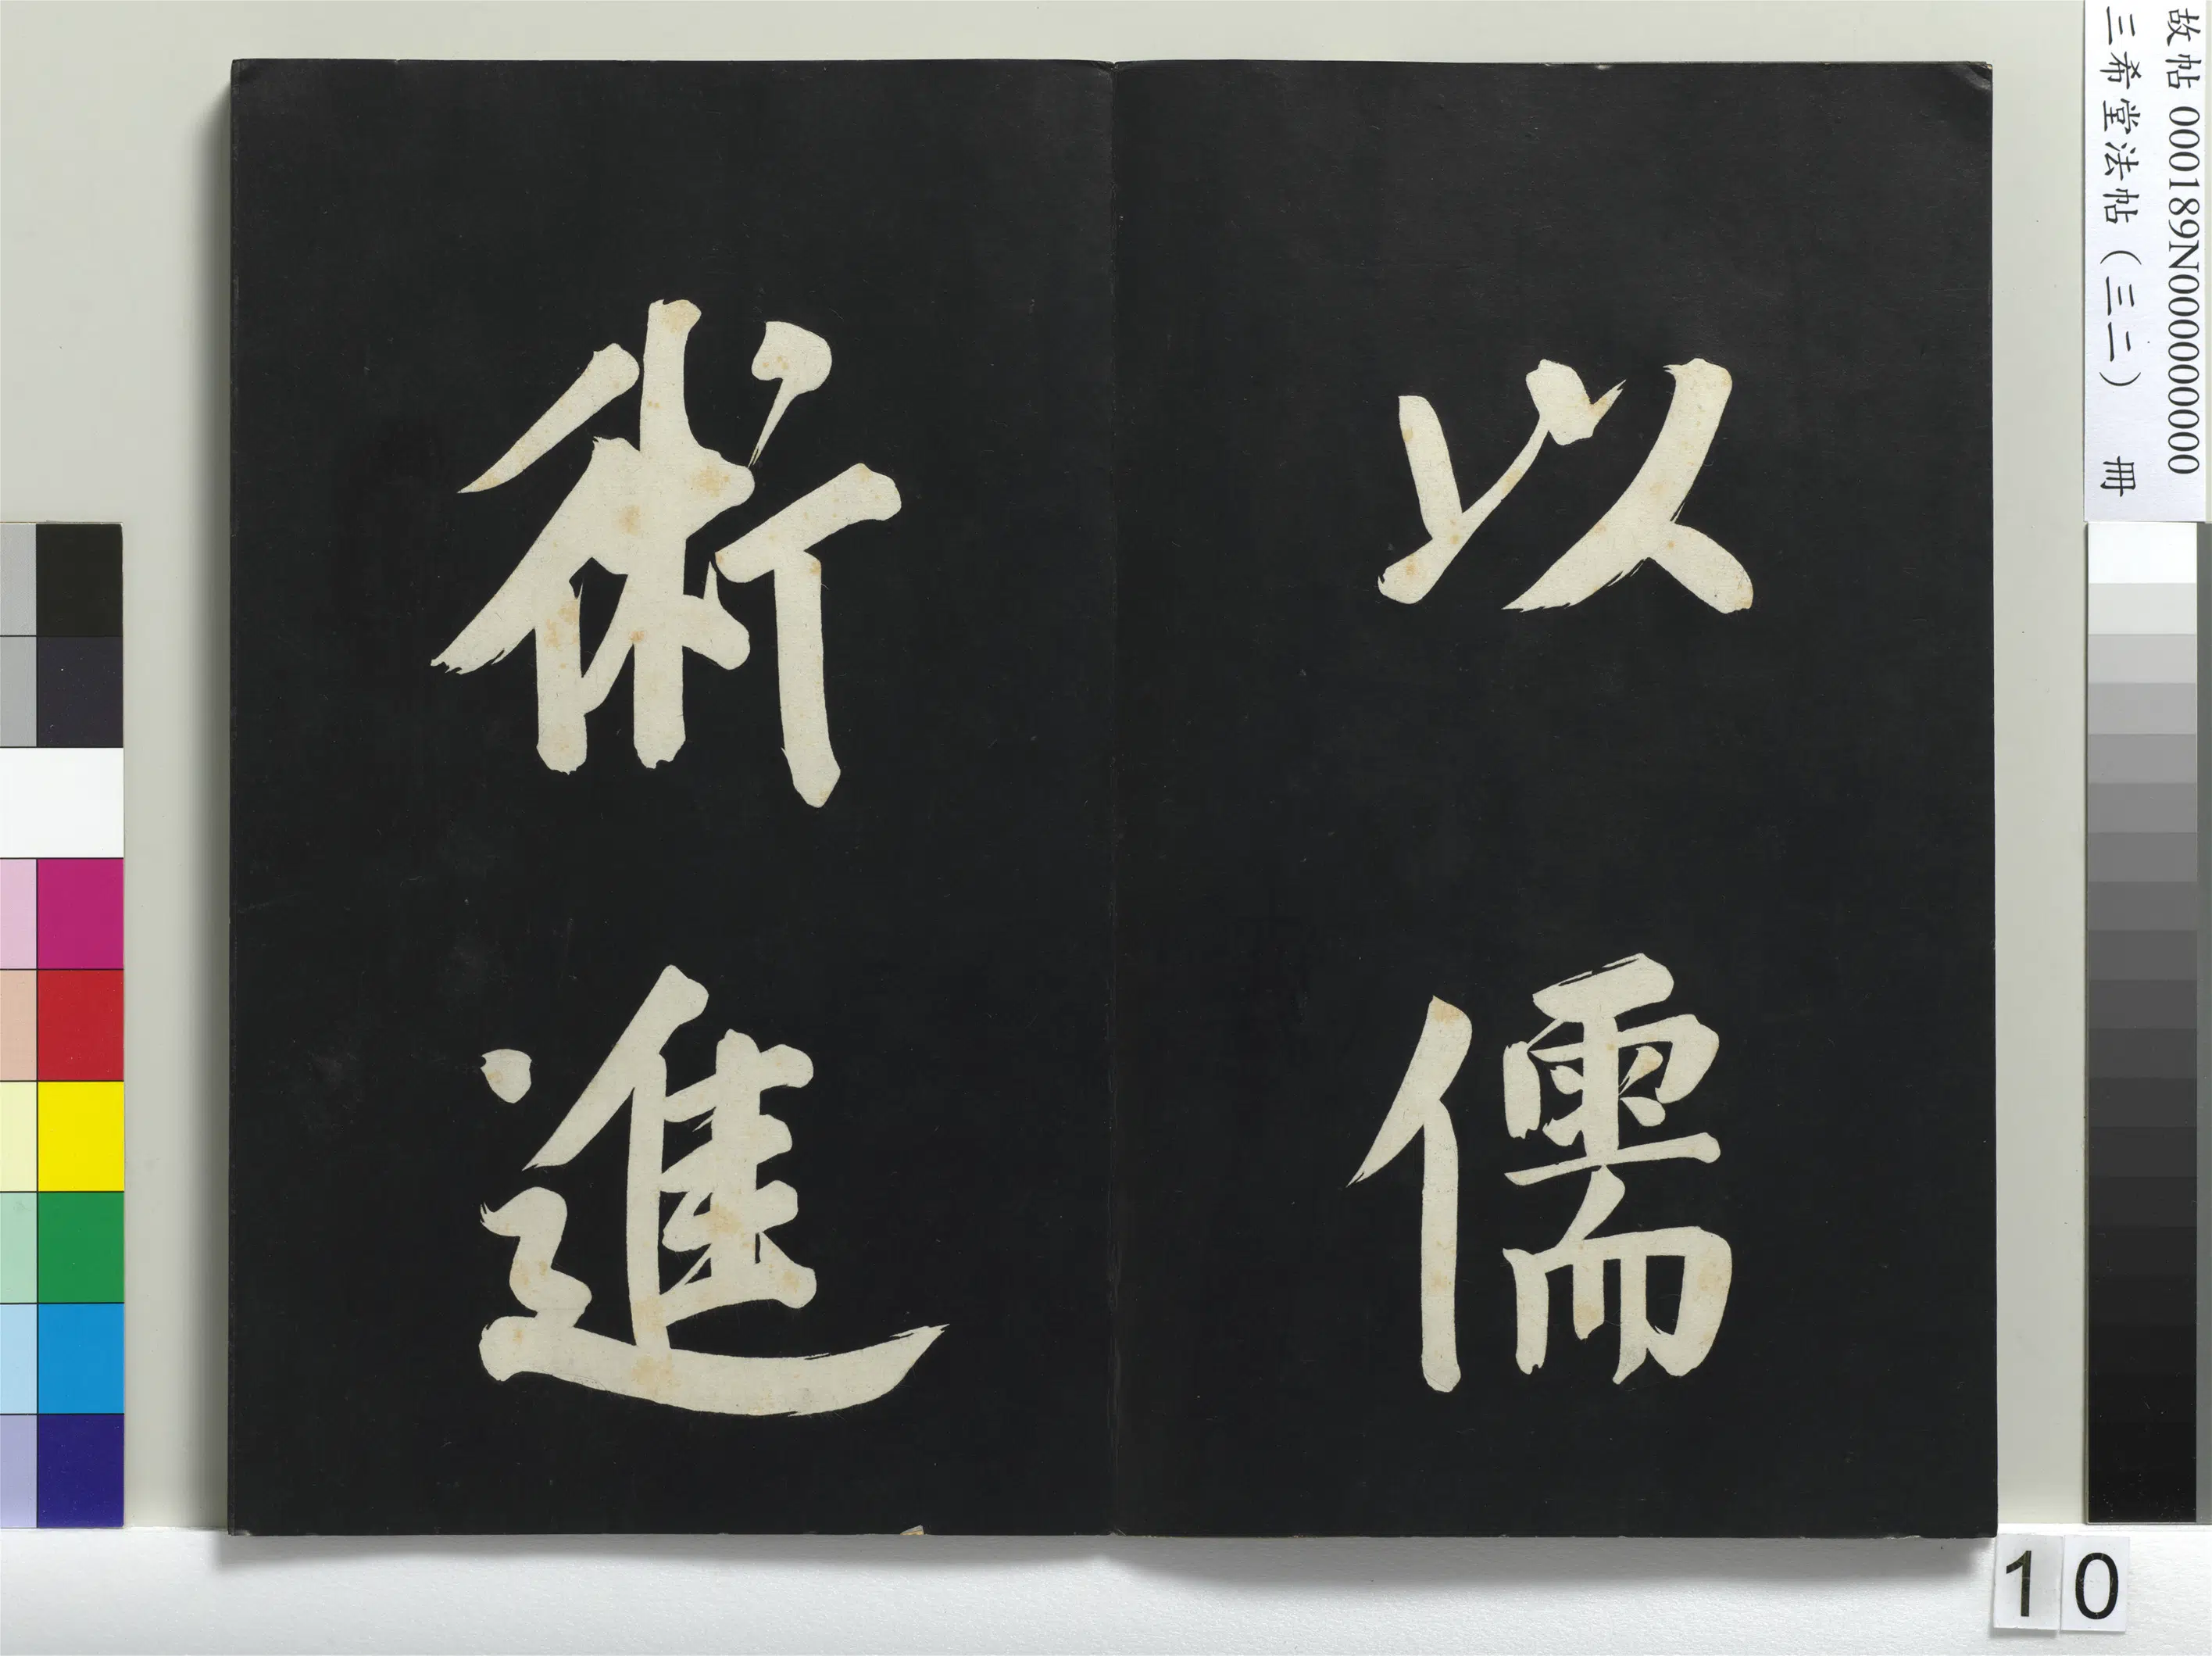 以儒
術進
故帖 000189N000000000
三希堂法帖（三二） 冊
10